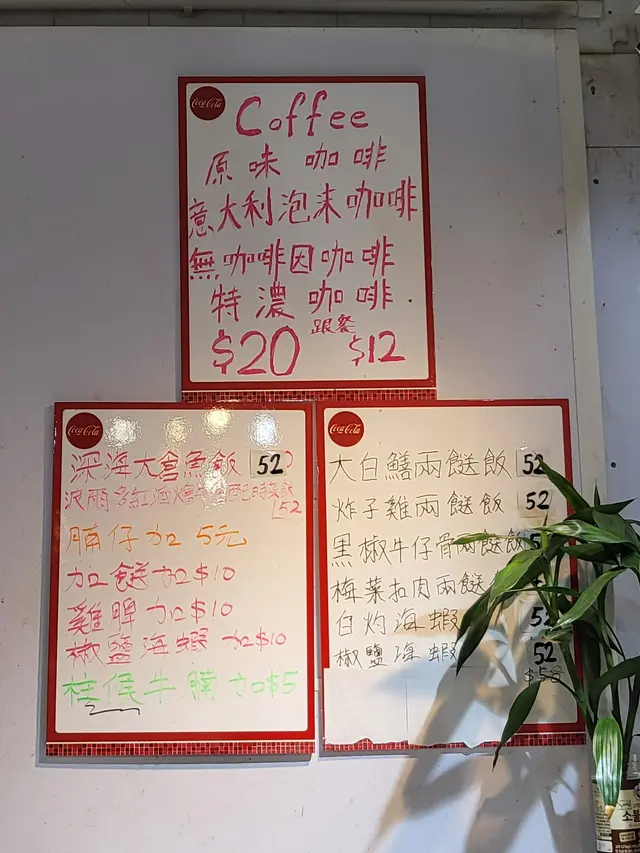 Coca-Cola
Coffee
原味 咖啡
意大利泡沫咖啡
無咖啡因咖啡
特濃咖啡
跟餐
$20 $12
Coca-Cola
深海大倉魚飯 52
52
腩仔加 5元
加餸加$10
雞脾加$10
椒鹽海蝦 加$10
柱侯牛腩加$5
Coca-Cola
大白鱔兩餸飯 52
炸子雞兩餸飯 52
黑椒牛仔骨兩餸飯
梅菜扣肉兩餸
白灼海蝦 52
椒鹽海蝦 52
$58